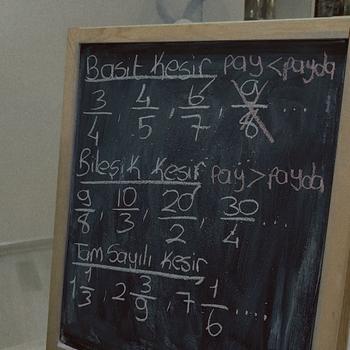 Basit Kesir pay < payda
3/4, 4/5, 6/7, 9/8 ...
Bileşik Kesir pay > payda
9/8, 10/3, 20/2, 30/4
Tam Sayılı Kesir
1 1/3, 2 3/9, 7 1/6 ....